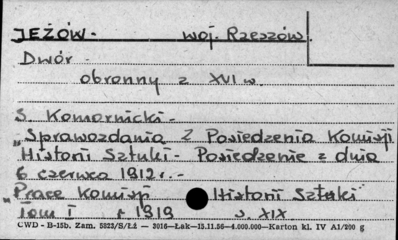 JEŻÓW. woj. Rzeszów.
Dwór -
obronny z XVI w.
S. Komornicki -
„Sprawozdania z Posiedzenia Komisji
Historii Sztuki - Posiedzenie z dnia
6 czerwca 1912 r. -
„Prace Komisji Historii Sztuki"
Tom I r 1919 s. XIX
CWD - B-15b. Zam. 5323/S/Łż — 3016—Łak—15.11.56—4.000.000—Karton kl. IV A1/200 g